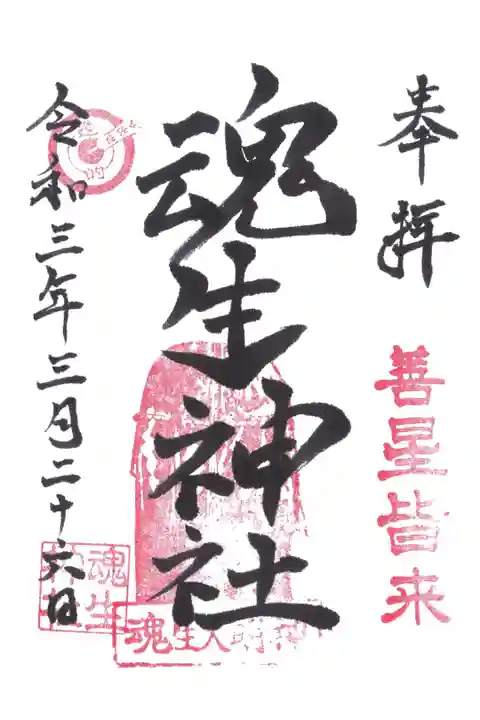 奉拝
善星皆来
魂生神社
魂生大明神
令和三年三月二十六日
魂生